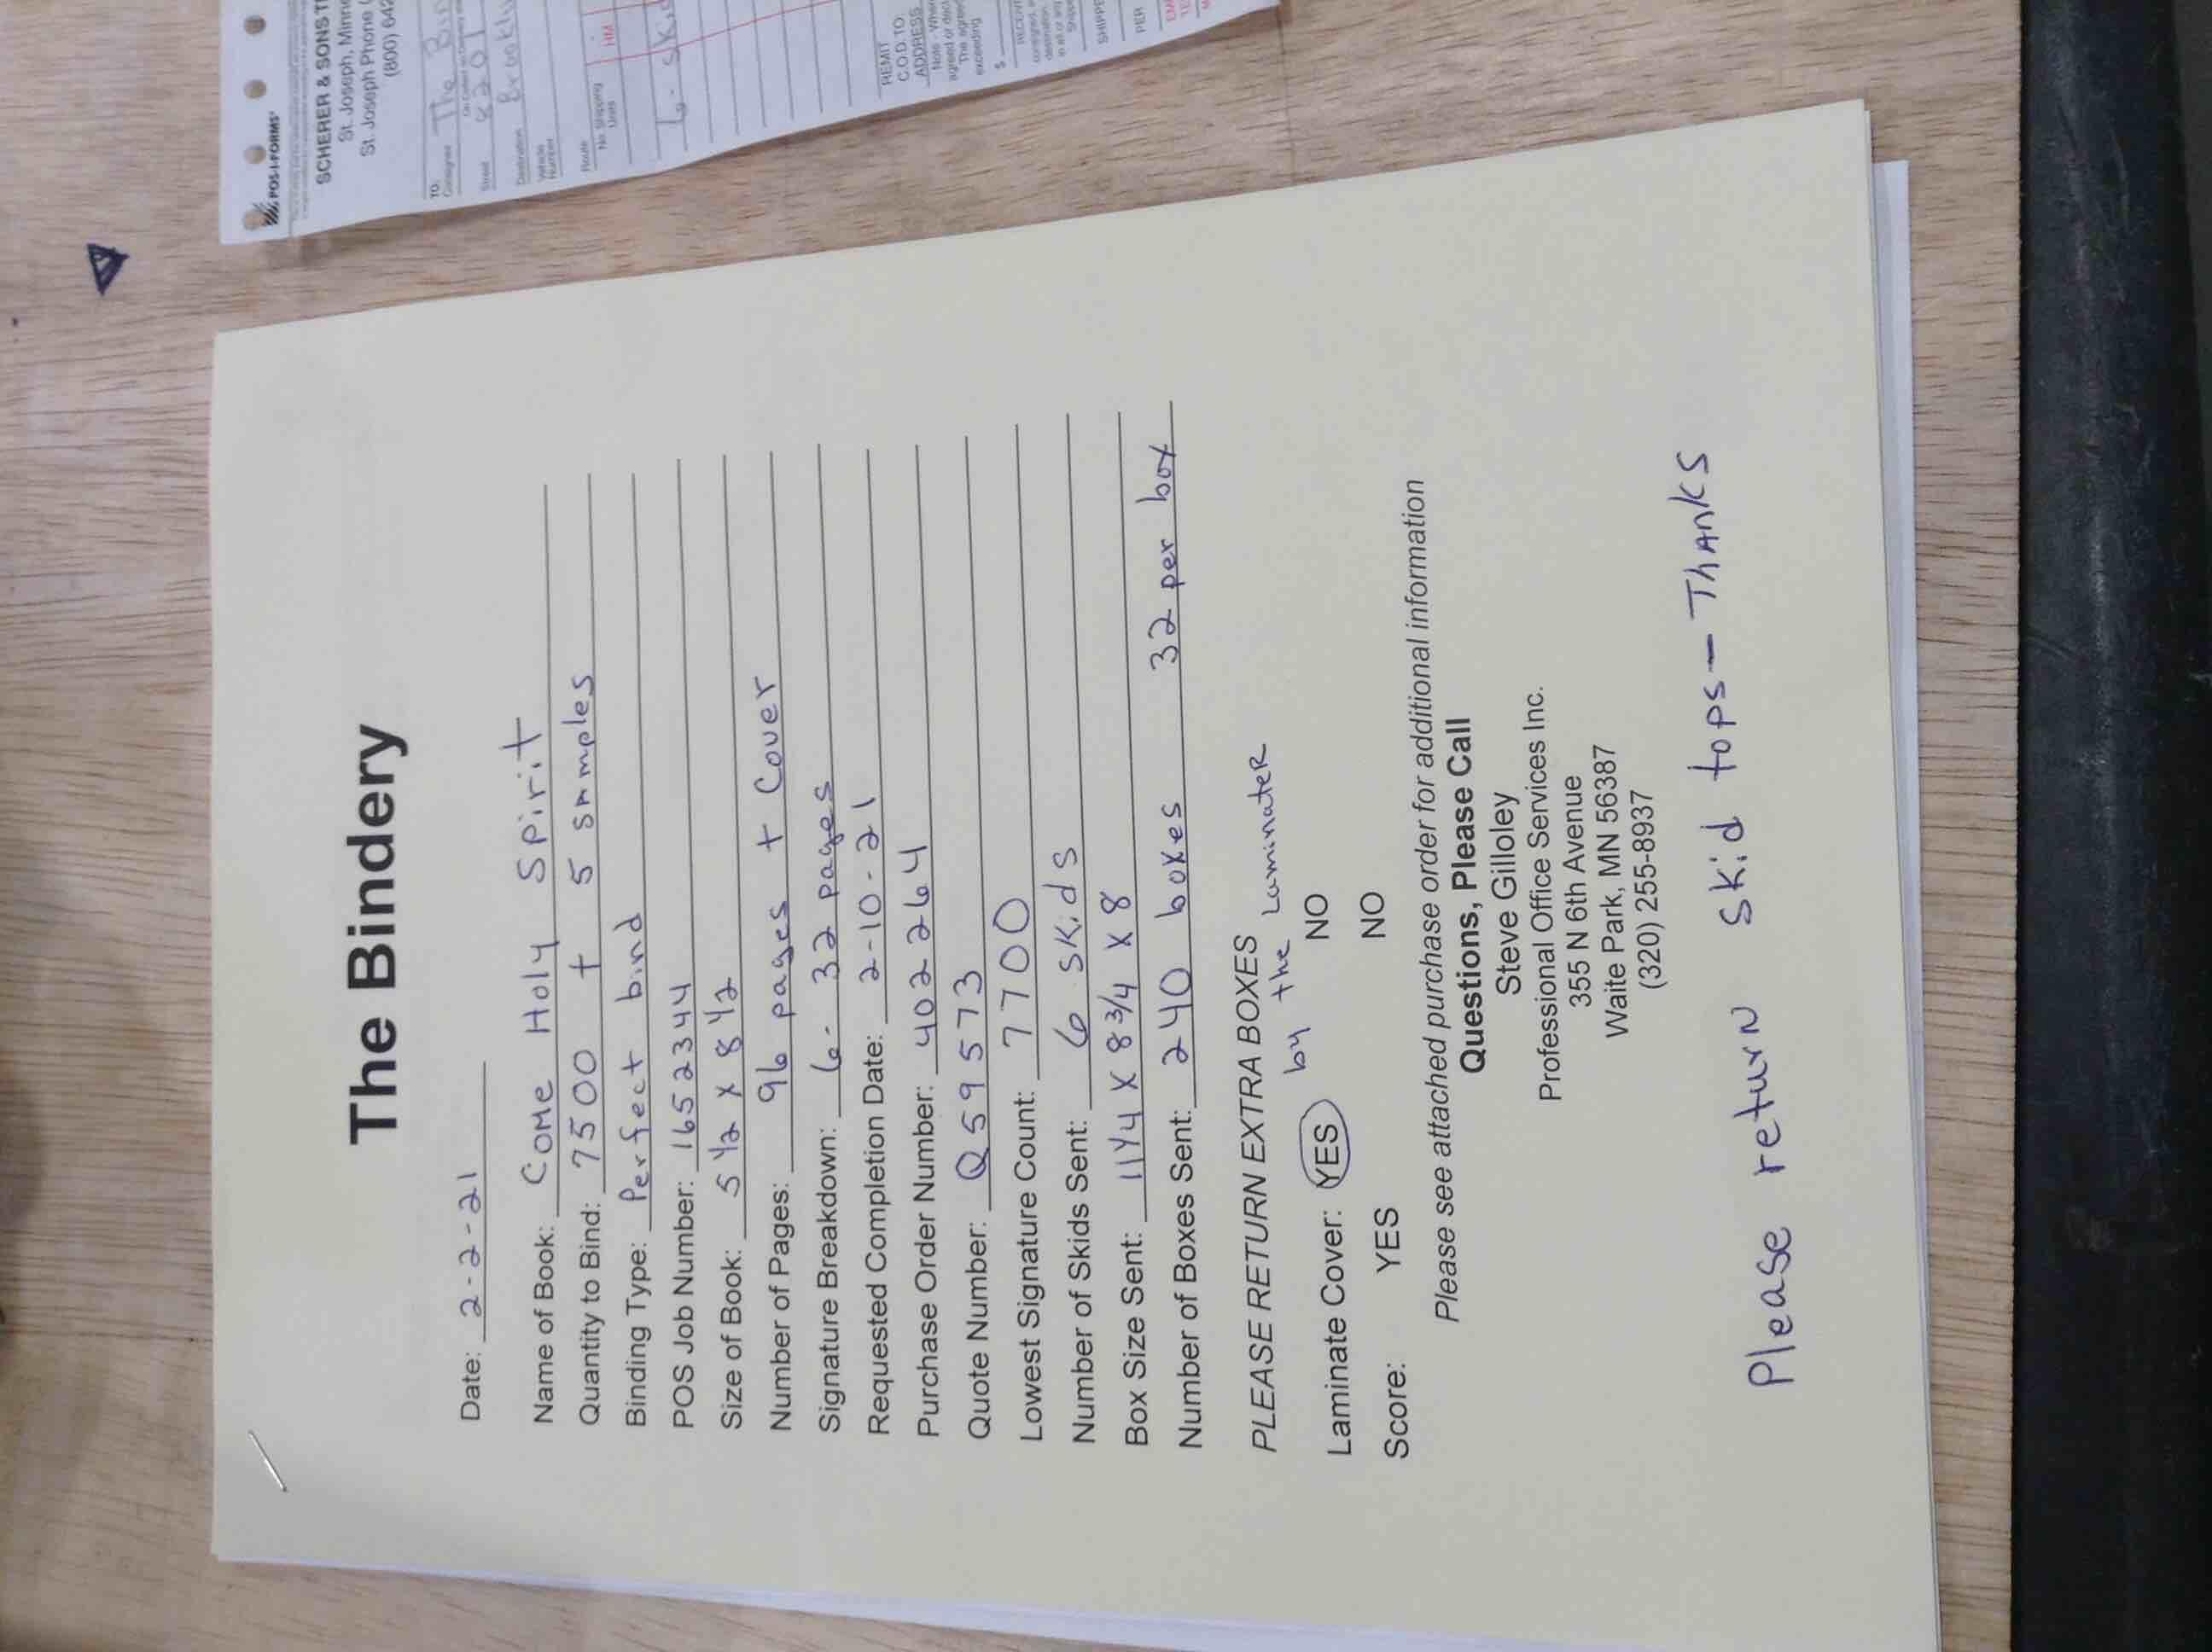 The Bindery
Date: 2-2-21
Name of Book: Come Holy Spirit
Quantity to Bind: 7500 + 5 samples
Binding Type: Perfect bind
POS Job Number: 1652344
Size of Book: 5 1/2 x 8 1/2
Number of Pages: 96 pages + Cover
Signature Breakdown: 6- 32 pages
Requested Completion Date: 2-10-21
Purchase Order Number: 402264
Quote Number: Q59573
Lowest Signature Count: 7700
Number of Skids Sent: 6 skids
Box Size Sent: 11 1/4 x 8 3/4 x 8
Number of Boxes Sent: 240 boxes 32 per box
PLEASE RETURN EXTRA BOXES
by the Laminater
Laminate Cover: YES NO
Score: YES NO
Please see attached purchase order for additional information
Questions, Please Call
Steve Gilloley
Professional Office Services Inc.
355 N 6th Avenue
Waite Park, MN 56387
(320) 255-8937
Please return skid tops - Thanks
POS-I-FORMS
SCHERER & SONS
St. Joseph, Minne
St. Joseph Phone (
(800) 642
TO:
Consignee The Bin
Street 8201
Destination Brookly
Vehicle
Number
Route
No. Shipping
Units
HM
6- skid
REMIT
C.O.D. TO:
ADDRESS
exceeding
$
SHIPPE
PER